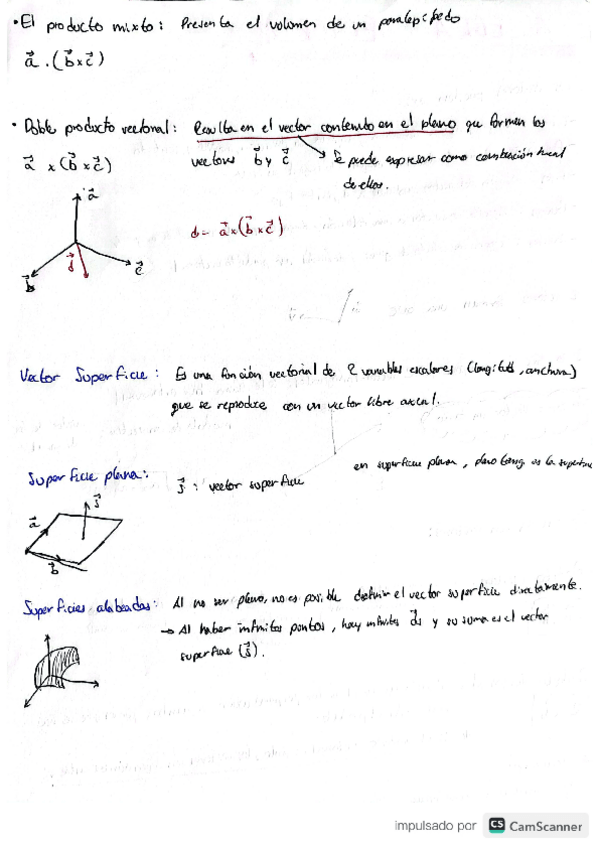 • El producto mixto: Presenta el volumen de un paralepípedo
a⃗ . (b⃗ x c⃗)
• Doble producto vectorial: Resulta en el vector contenido en el plano que forman los
vectores b⃗ y c⃗
a⃗ x (b⃗ x c⃗)
Se puede expresar como combinación lineal
de ellos.
a⃗
d = a⃗ x (b⃗ x c⃗)
b⃗ d⃗ c⃗
Vector Superficie: Es una función vectorial de 2 variables escalares (longitud, anchura)
que se reproduce con un vector libre axial.
en superficie plana, plano tang es la superficie
Superficie plana: s⃗ : vector superficie
a⃗ s⃗
b⃗
Superficies alabeadas: Al no ser plano, no es posible definir el vector superficie directamente.
→ Al haber infinitos puntos, hay infinitos ds⃗ y su suma es el vector
superficie (s⃗).
impulsado por CS CamScanner